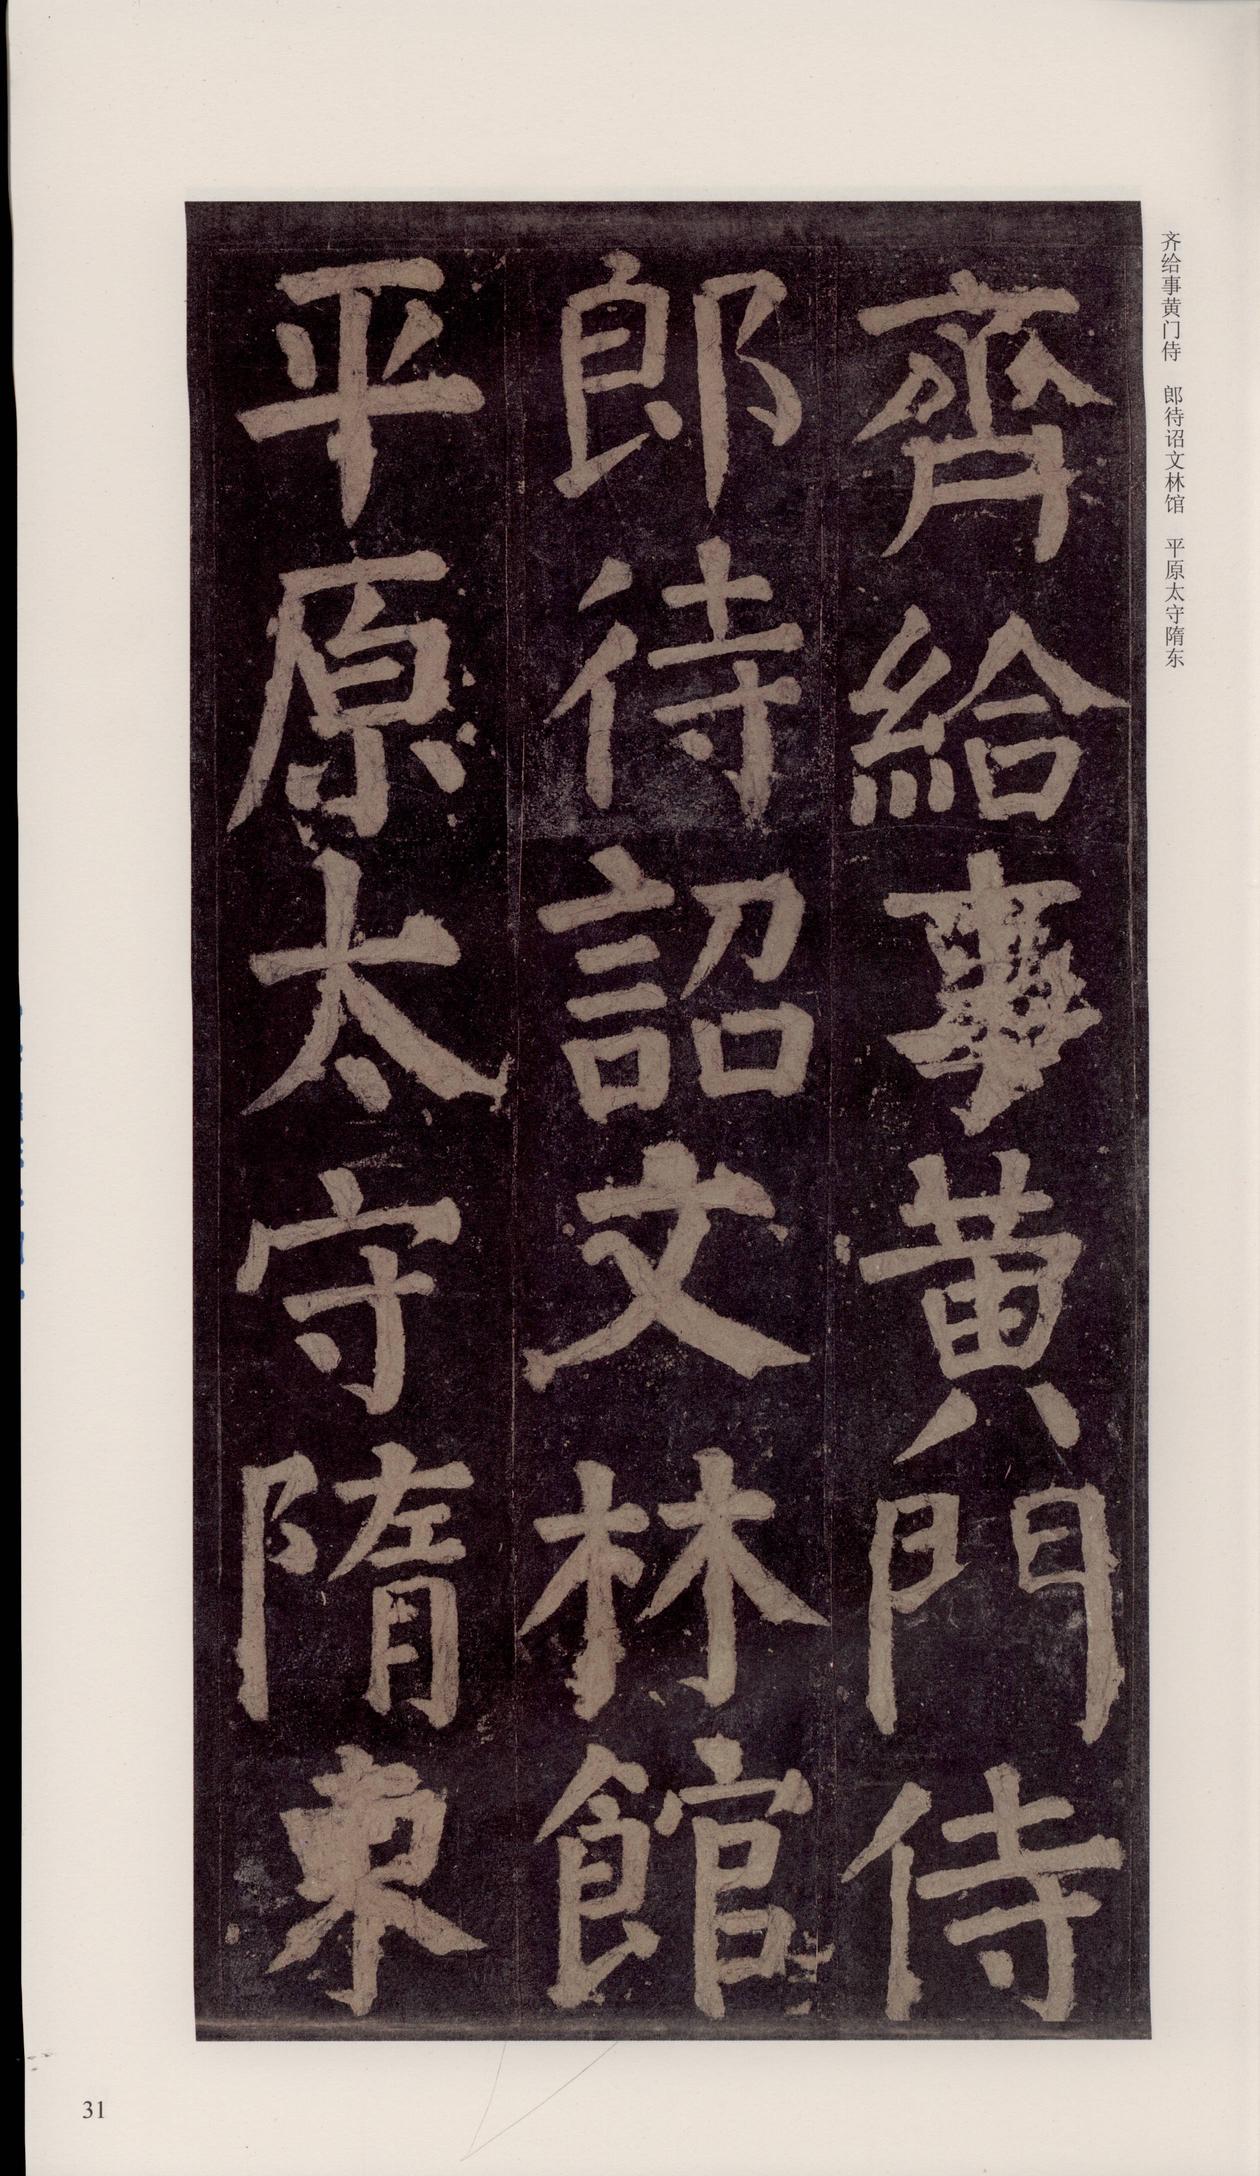 齊給事黃門侍
郎待詔文林館
平原太守隋東
齐给事黄门侍 郎待诏文林馆 平原太守隋东
31